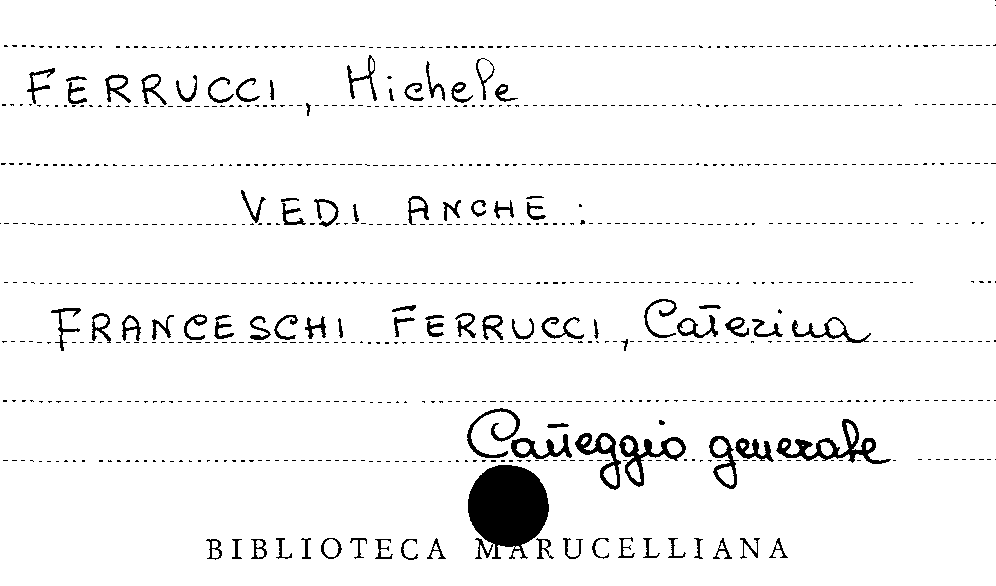 FERRUCCI, Michele
VEDI ANCHE :
FRANCESCHI FERRUCCI, Caterina
Carteggio generale
BIBLIOTECA MARUCELLIANA